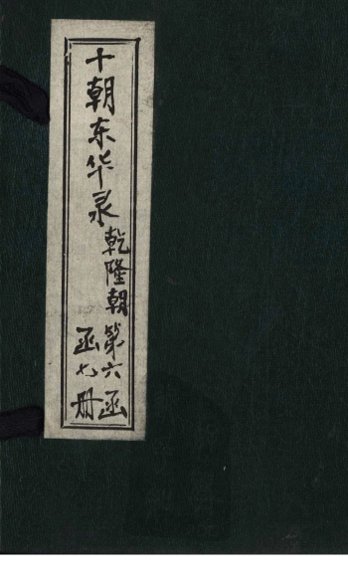 十朝东华录
乾隆朝第六函
函七册